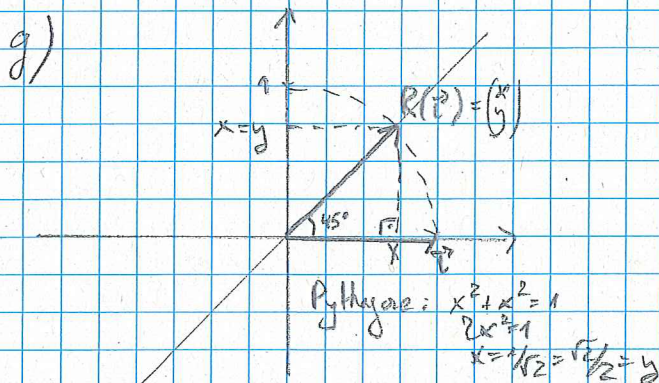 g)
1
R(i⃗) = (x y)
x = y
45°
x
i⃗
Pythagore : x² + x² = 1
2x² = 1
x = 1/√2 = √2/2 = y